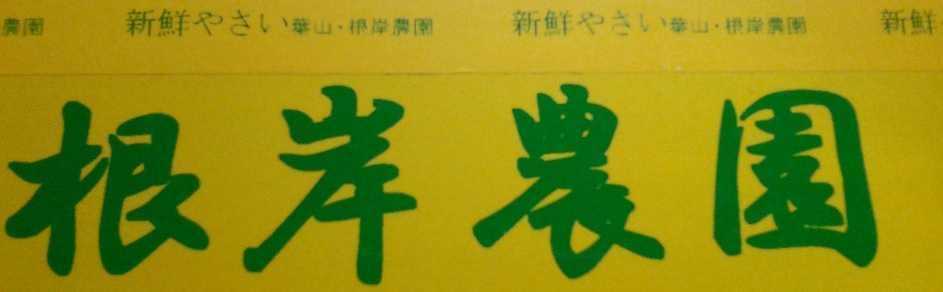 農園 新鮮やさい葉山・根岸農園 新鮮やさい葉山・根岸農園 新鮮
根岸農園